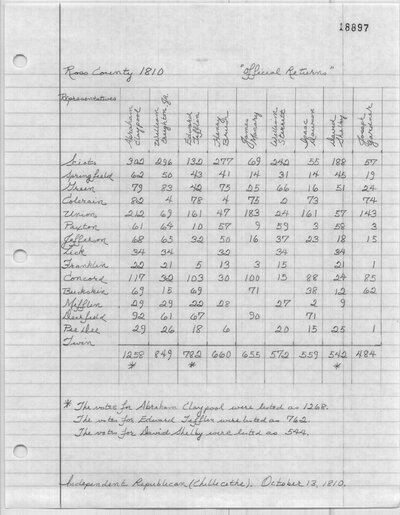 18897
Ross County 1810 "Official Returns"
Representatives
Abraham Claypool William Creighton Jr Edward Tiffin Henry Brush James William Sterrett Isaac David Shelby Joseph Gardner
Scioto 302 296 132 277 69 240 55 188 57
Springfield 62 50 43 41 14 31 14 45 19
Green 79 83 42 75 25 66 16 51 24
Colerain 82 4 78 4 75 2 73 74
Union 212 69 161 47 183 24 161 57 143
Paxton 61 64 10 57 9 59 3 58 3
Jefferson 68 65 32 50 16 37 23 18 15
Lick 34 34 32 34 34
Franklin 22 21 5 13 3 15 21 1
Concord 117 32 103 30 100 15 88 24 85
Buckskin 69 15 69 71 38 12 62
Mifflin 29 29 22 28 27 2 9
Deerfield 92 61 67 90 71
Pee Dee 29 26 18 6 20 15 25 1
Twin
1258 849 782 660 655 572 559 542 484
* * *
* The votes for Abraham Claypool were listed as 1268.
The votes for Edward Tiffin were listed as 762.
The votes for David Shelby were listed as 544.
Independent Republican (Chillicothe). October 13, 1810.